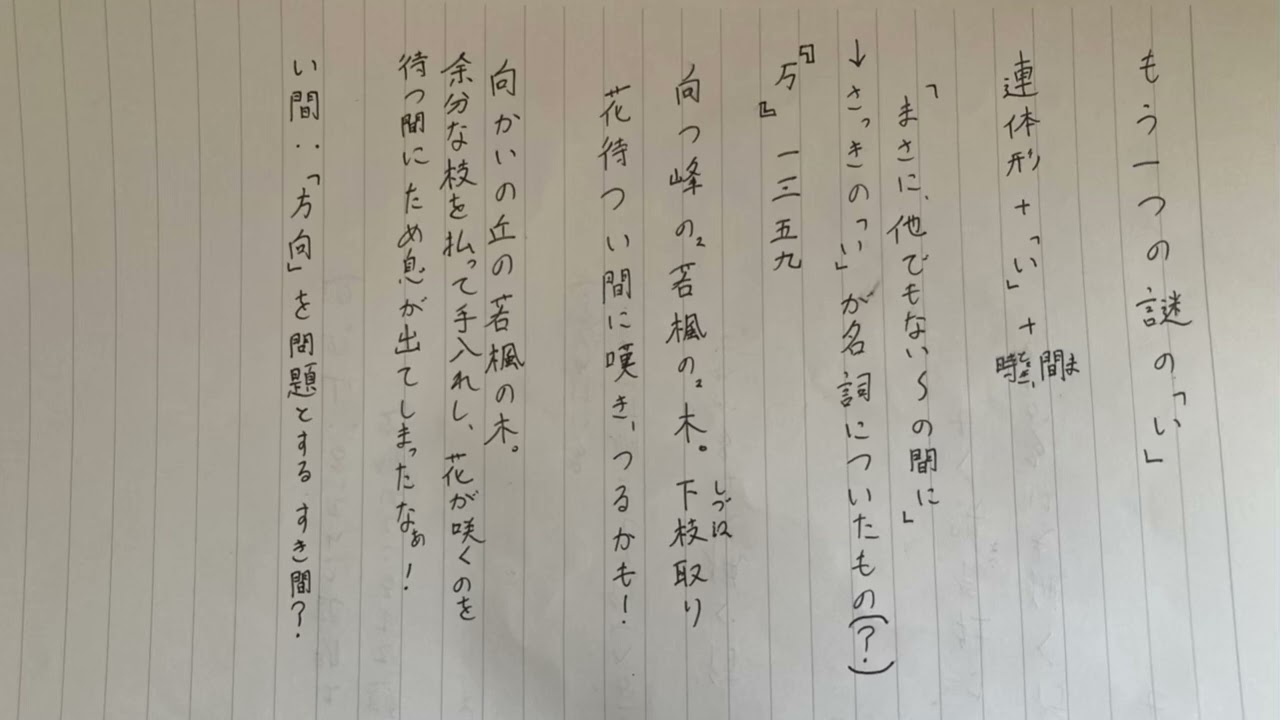 もう一つの謎の「い」
連体形+「い」+間ま
時
「まさに、他でもない～の間に」
↓さっきの「い」が名詞についたもの(?)
『万』一三五九
向つ峰の若楓の木。下枝取り
しづは
花待つい間に嘆き、つるかも!
向かいの丘の若楓の木。
余分な枝を払って手入れし、花が咲くのを
待つ間にため息が出てしまったなぁ!
い間:「方向」を問題とするすき間?